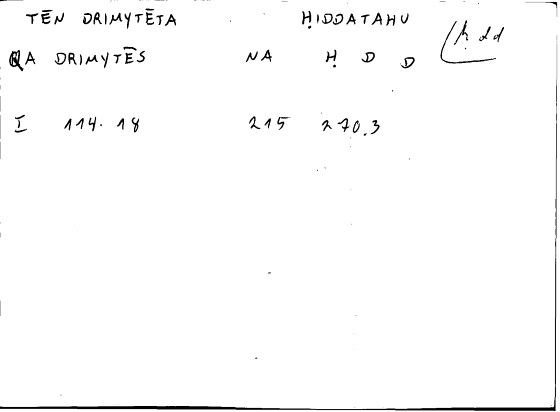 TĒN DRIMYTĒTA ḤIDDATAHU ḥdd
QA DRIMYTĒS NA Ḥ D D
I 114.18 215 270.3